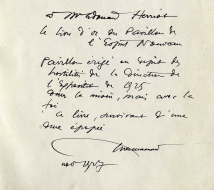 à Mr Edouard Herriot
le livre d'or du Pavillon de
l'Esprit Nouveau
Pavillon érigé en dépit des
hostilités de la Direction de
l'Exposition de 1925
dans la main, mais avec la
foi
a lire, souvenir d'une
épopée
nov 1927